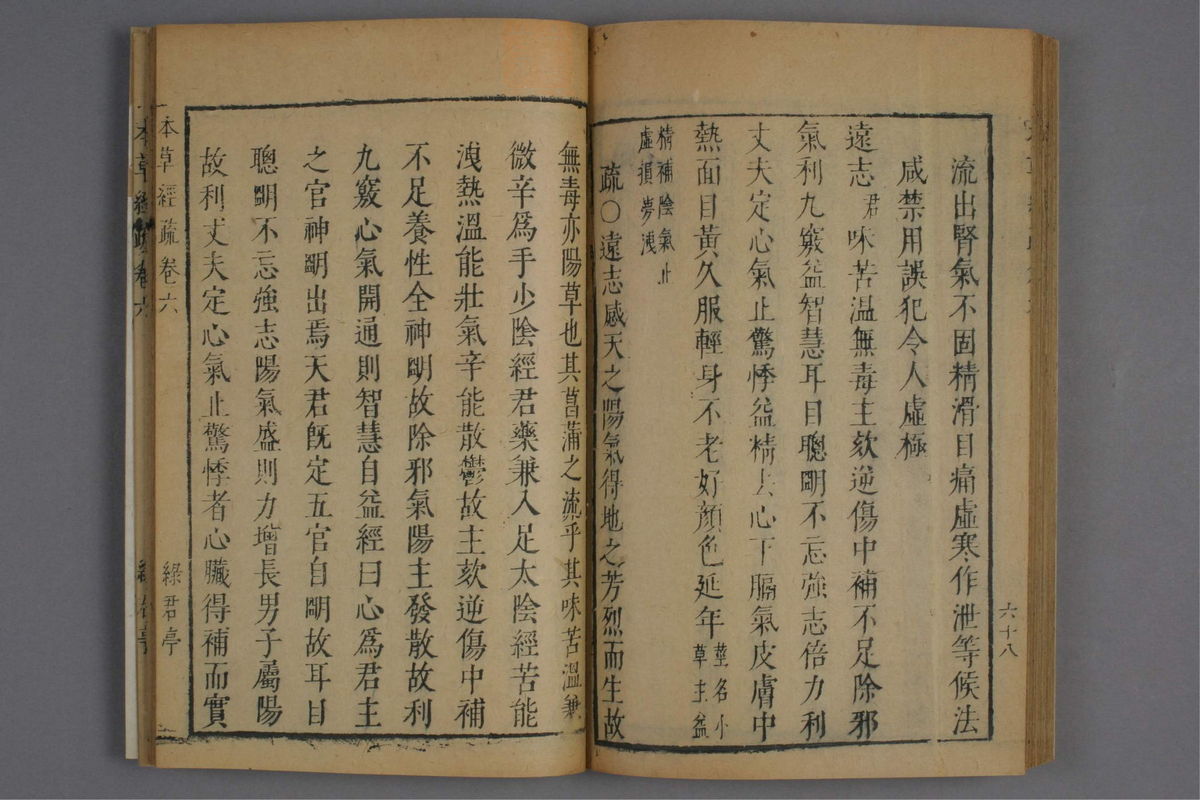 流出腎氣不固精滑目痛虛寒作泄等候法
咸禁用誤犯令人虛極
遠志君味苦溫無毒主欬逆傷中補不足除邪
氣利九竅益智慧耳目聰明不忘強志倍力利
丈夫定心氣止驚悸益精去心下膈氣皮膚中
熱面目黃久服輕身不老好顏色延年莖名小
草主益
精補陰氣止
虛損夢洩
疏○遠志感天之陽氣得地之芳烈而生故
六十八
無毒亦陽草也其菖蒲之流乎其味苦溫兼
微辛爲手少陰經君藥兼入足太陰經苦能
洩熱溫能壯氣辛能散鬱故主欬逆傷中補
不足養性全神明故除邪氣陽主發散故利
九竅心氣開通則智慧自益經曰心爲君主
之官神明出焉天君旣定五官自明故耳目
聰明不忘強志陽氣盛則力增長男子屬陽
故利丈夫定心氣止驚悸者心臟得補而實
本草經疏 卷六 綠君亭
本草經疏 卷六